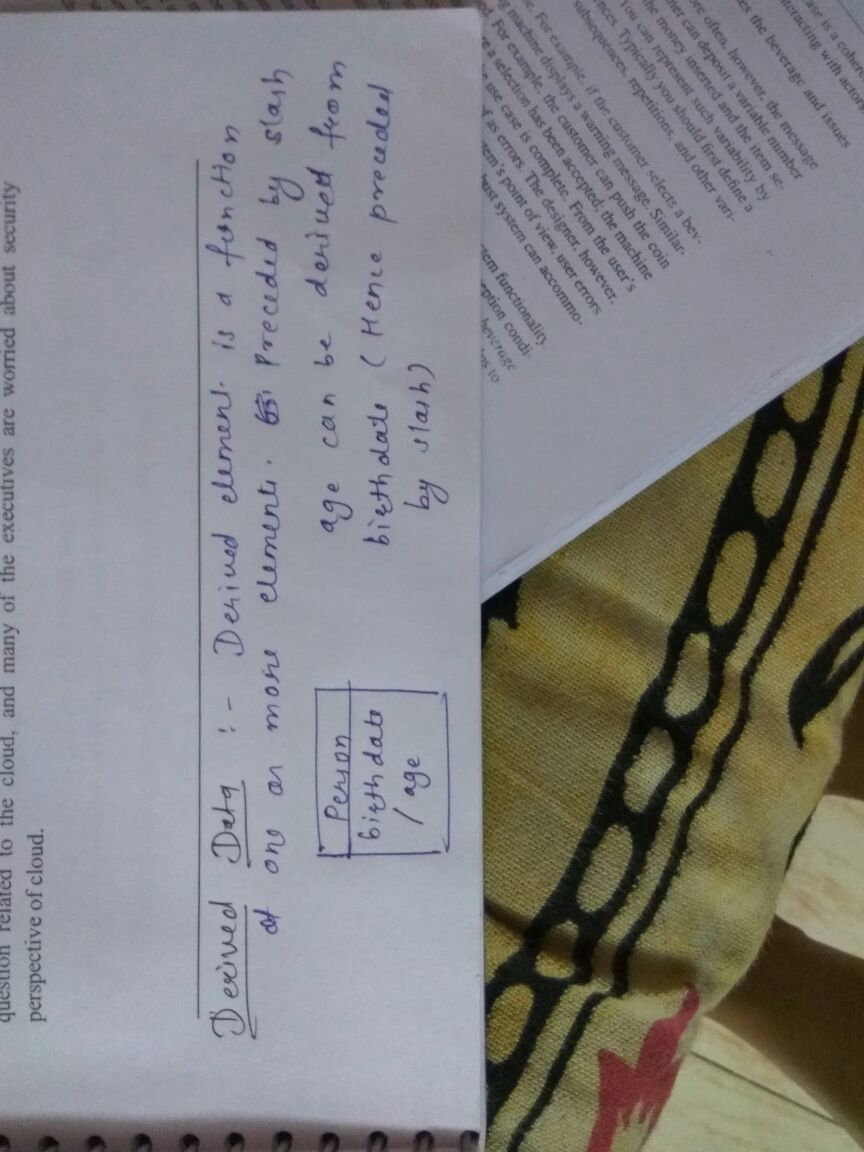 question related to the cloud, and many of the executives are worried about security
perspective of cloud.
Derived Data :- Derived element is a function
of one or more elements. Preceded by slash
Person
birthdate
/ age
age can be derived from
birthdate (Hence preceded
by slash)
ase is a coheren
eracting with actor
es the beverage and issues
re often, however, the message
mer can deposit a variable number
the money inserted and the item se-
You can represent such variability by
nces. Typically you should first define a
subsequences, repetitions, and other vari-
e. For example, if the customer selects a bev-
g machine displays a warning message. Similar-
. For example, the customer can push the coin
e a selection has been accepted, the machine
use case is complete. From the user's
f as errors. The designer, however,
tem's point of view, user errors
bust system can accommo-
tem functionality.
eption condi-
beverage
to